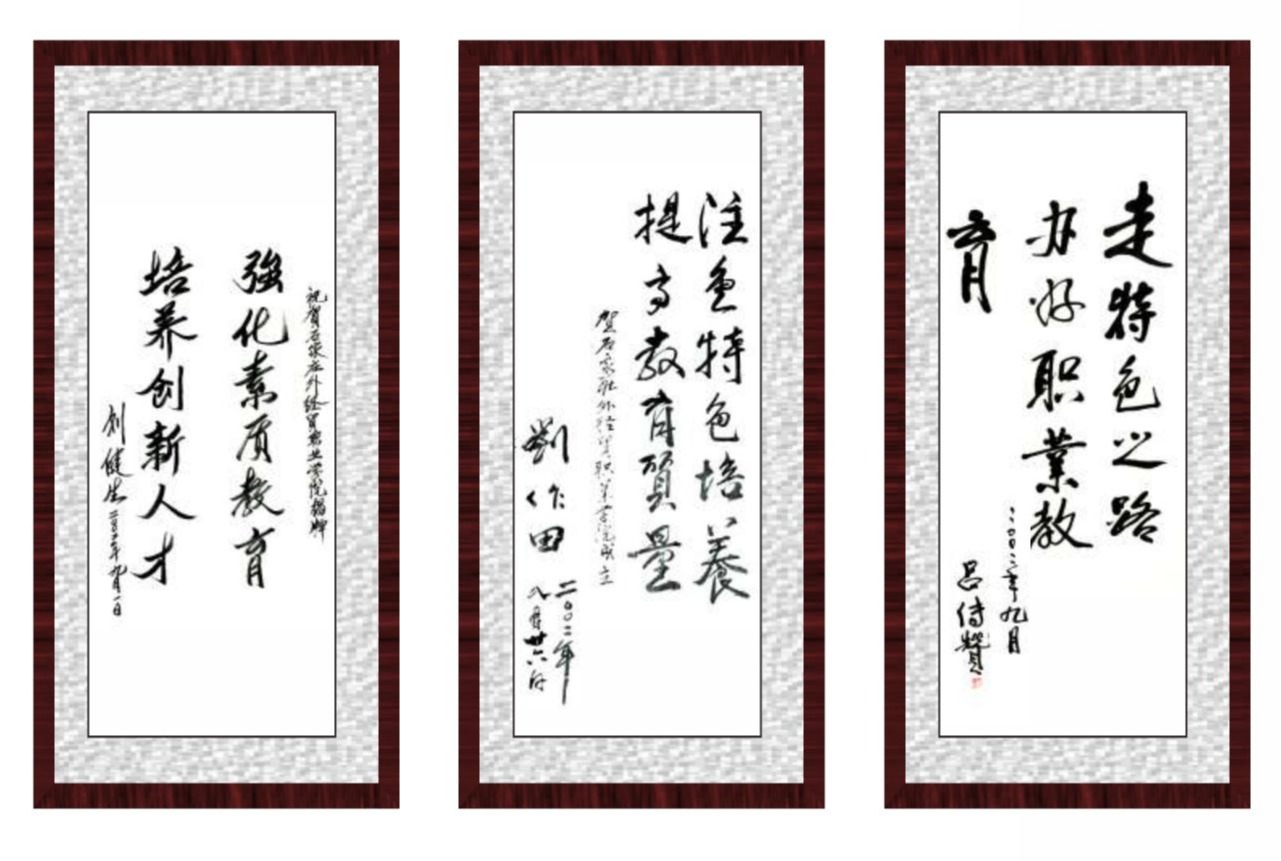 祝贺石家庄外经贸职业学院揭牌
強化素质教育
培养创新人才
刘健生二〇〇二年九月一日
注重特色培養
提高教育質量
贺石家庄外经贸职业学院成立
二〇〇二年
劉作田
八月廿六日
走特色之路
办好职业教
育
二〇〇二年九月
吕傳赞